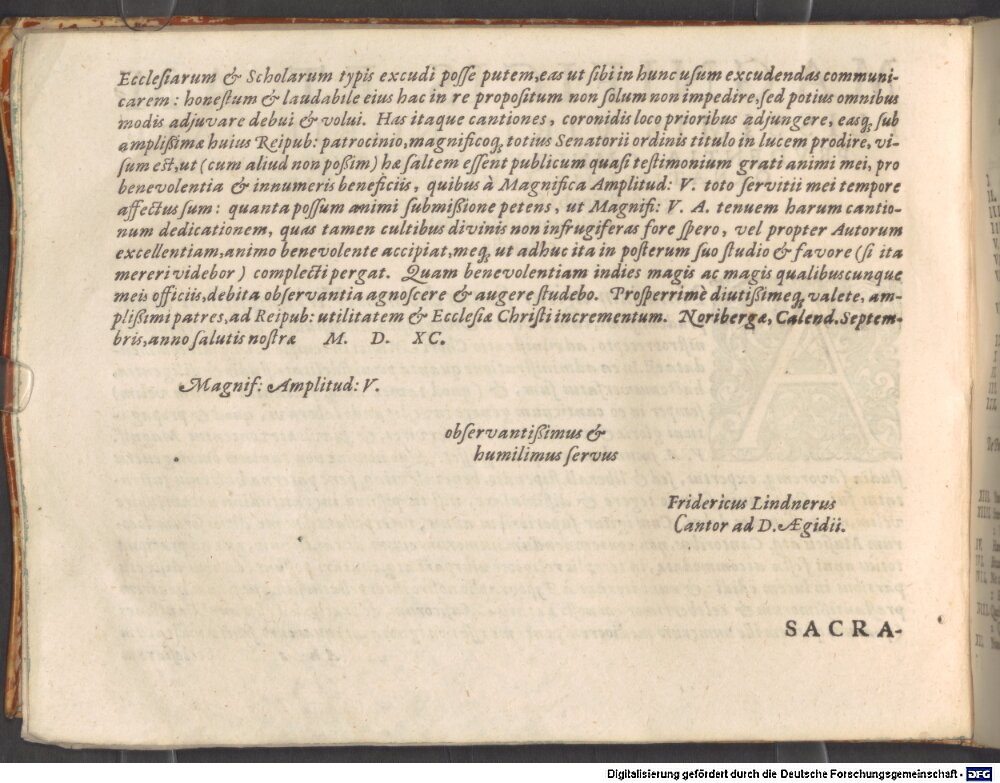 Ecclesiarum & Scholarum typis excudi posse putem, eas ut sibi in hunc usum excudendas communi-
carem : honestum & laudabile eius hac in re propositum non solum non impedire, sed potius omnibus
modis adjuvare debui & volui. Has itaque cantiones, coronidis loco prioribus adjungere, easq; sub
amplißimæ huius Reipub: patrocinio, magnificoq; totius Senatorii ordinis titulo in lucem prodire, vi-
sum est, ut (cum aliud non poßim) hæ saltem essent publicum quasi testimonium grati animi mei, pro
benevolentia & innumeris beneficiis, quibus à Magnifica Amplitud: V. toto servitii mei tempore
affectus sum : quanta possum animi submißione petens, ut Magnif: V. A. tenuem harum cantio-
num dedicationem, quas tamen cultibus divinis non infrugiferas fore spero, vel propter Autorum
excellentiam, animo benevolente accipiat, meq; ut adhuc ita in posterum suo studio & favore (si ita
mereri videbor) complecti pergat. Quam benevolentiam indies magis ac magis qualibuscunque
meis officiis, debita observantia agnoscere & augere studebo. Prosperrimè diutißimeq; valete, am-
plißimi patres, ad Reipub: utilitatem & Ecclesiæ Christi incrementum. Noribergæ, Calend. Septem-
bris, anno salutis nostræ M. D. XC.
Magnif: Amplitud: V.
observantißimus &
humilimus servus
Fridericus Lindnerus
Cantor ad D. Ægidii.
SACRA-
Digitalisierung gefördert durch die Deutsche Forschungsgemeinschaft - DFG